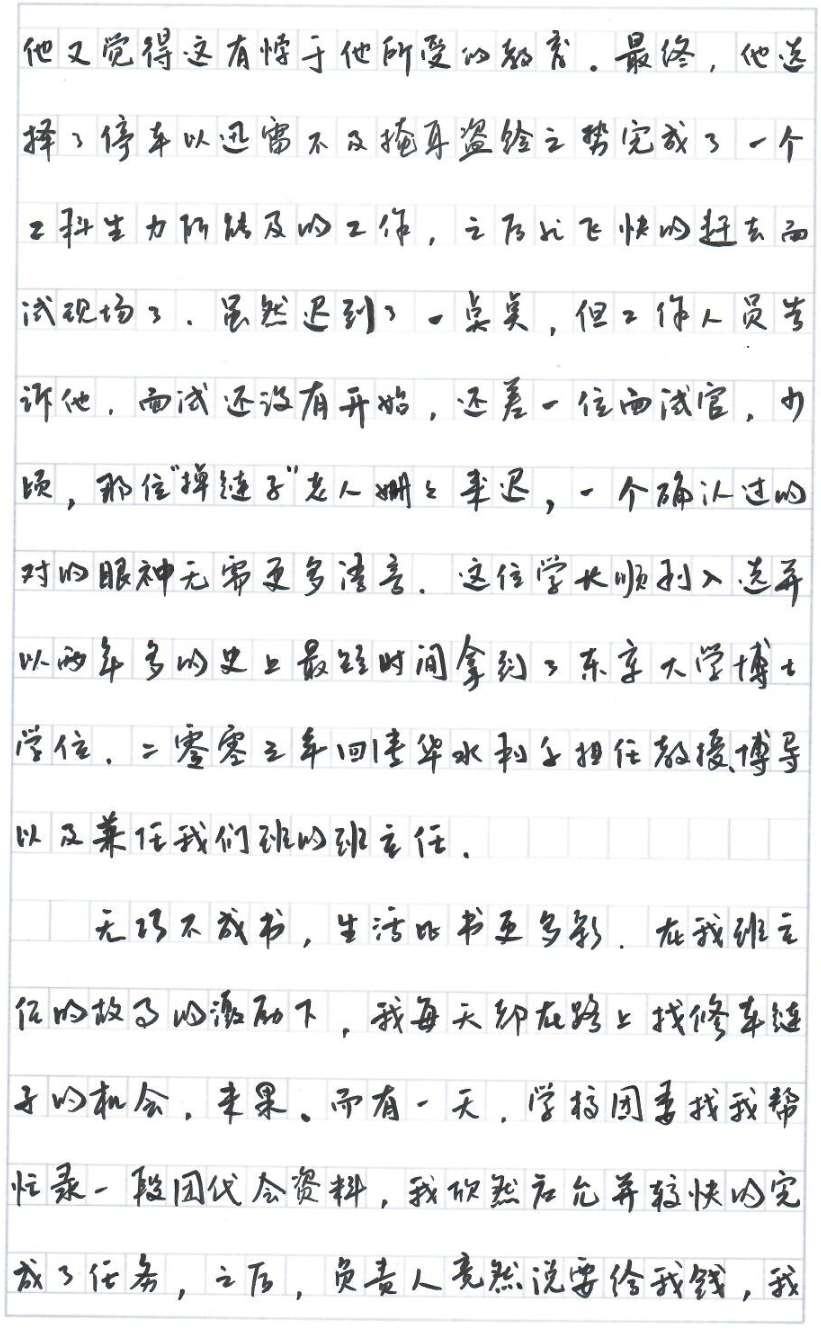 他又觉得这有悖于他所受的教育。最终，他选
择了停车以迅雷不及掩耳盗铃之势完成了一个
工科生力所能及的工作，之后就飞快的赶去面
试现场了。虽然迟到了一点点，但工作人员告
诉他，面试还没有开始，还差一位面试官，少
顷，那位“掉链子”老人姗々来迟，一个确认过的
对的眼神无需更多语言。这位学长顺利入选并
以两年多的史上最短时间拿到了东京大学博士
学位。二零零三年回清华水利系担任教授、博导
以及兼任我们班的班主任。
无巧不成书，生活比书更多彩。在我班主
任的故事的激励下，我每天都在路上找修车链
子的机会，未果。而有一天，学校团委找我帮
忙录一段团代会资料，我欣然应允并较快的完
成了任务，之后，负责人竟然说要给我钱，我